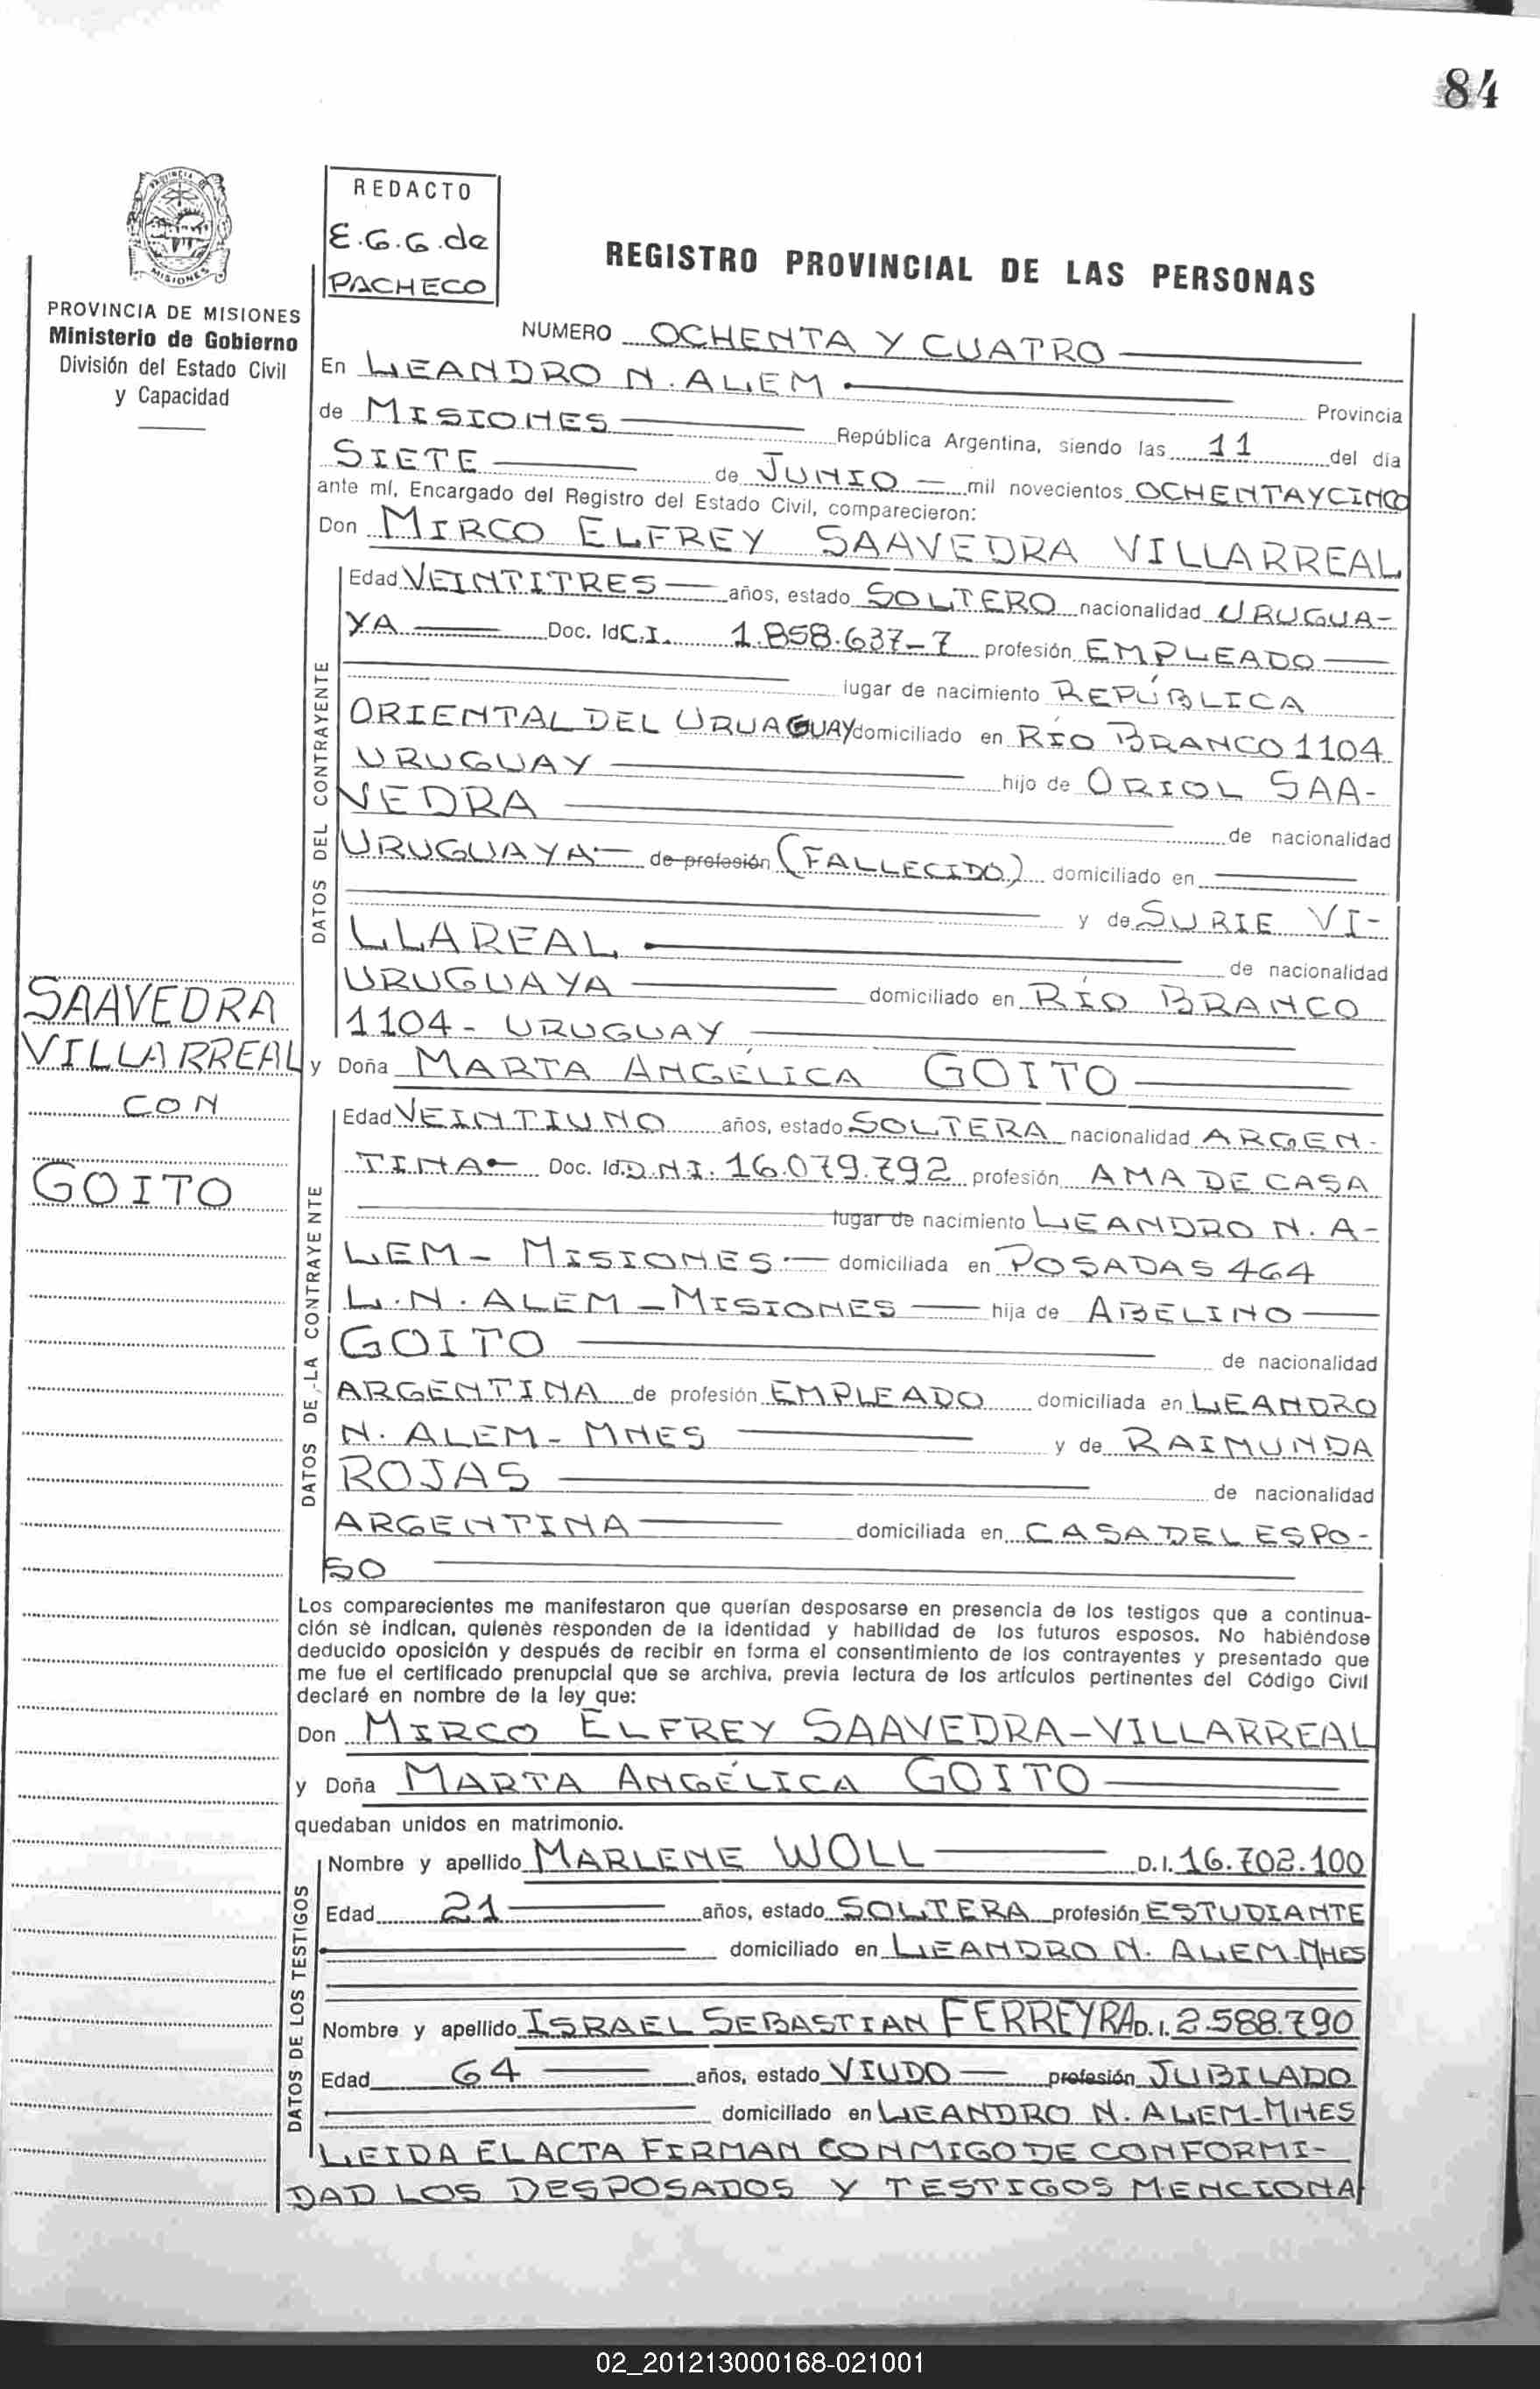 84
REDACTO
E.G.G.de
PACHECO
PROVINCIA DE MISIONES
Ministerio de Gobierno
División del Estado Civil
y Capacidad
REGISTRO PROVINCIAL DE LAS PERSONAS
NUMERO OCHENTA Y CUATRO
En LEANDRO N. ALEM
Provincia
de MISIONES República Argentina, siendo las 11 del día
SIETE de JUNIO mil novecientos OCHENTAYCINCO
ante mí, Encargado del Registro del Estado Civil, comparecieron:
Don MIRCO ELFREY SAAVEDRA VILLARREAL
DATOS DEL CONTRAYENTE
Edad VEINTITRES años, estado SOLTERO nacionalidad URUGUA-
YA Doc. Id C.I. 1.858.637-7 profesión EMPLEADO
lugar de nacimiento REPÚBLICA
ORIENTAL DEL URUAGUAY domiciliado en RÍO BRANCO 1104
URUGUAY hijo de ORIOL SAA-
VEDRA
de nacionalidad
URUGUAYA de profesión (FALLECIDO) domiciliado en
y de SURIE VI-
LLAREAL
de nacionalidad
URUGUAYA domiciliado en RÍO BRANCO
1104- URUGUAY
SAAVEDRA
VILLARREAL
CON
GOITO
y Doña MARTA ANGÉLICA GOITO
DATOS DE LA CONTRAYENTE
Edad VEINTIUNO años, estado SOLTERA nacionalidad ARGEN-
TINA Doc. Id. D.N.I. 16.079.792 profesión AMA DE CASA
lugar de nacimiento LEANDRO N. A-
LEM- MISIONES.- domiciliada en POSADAS 464
L.N. ALEM-MISIONES hija de ABELINO
GOITO
de nacionalidad
ARGENTINA de profesión EMPLEADO domiciliada en LEANDRO
N. ALEM- MNES y de RAIMUNDA
ROJAS
de nacionalidad
ARGENTINA domiciliada en CASA DEL ESPO-
SO
Los comparecientes me manifestaron que querían desposarse en presencia de los testigos que a continua-
ción sè indican, quienès rèsponden de la identidad y habilidad de los futuros esposos. No habiéndose
deducido oposición y después de recibir en forma el consentimiento de los contrayentes y presentado que
me fue el certificado prenupcial que se archiva, previa lectura de los artículos pertinentes del Código Civil
declaré en nombre de la ley que:
Don MIRCO ELFREY SAAVEDRA-VILLARREAL
y Doña MARTA ANGÉLICA GOITO
quedaban unidos en matrimonio.
DATOS DE LOS TESTIGOS
Nombre y apellido MARLENE WOLL D.I. 16.702.100
Edad 21 años, estado SOLTERA profesión ESTUDIANTE
domiciliado en LEANDRO N. ALEM-MNES
Nombre y apellido ISRAEL SEBASTIAN FERREYRA D.I. 2.588.790
Edad 64 años, estado VIUDO profesión JUBILADO
domiciliado en LEANDRO N. ALEM-MNES
LEIDA EL ACTA FIRMAN CONMIGO DE CONFORMI-
DAD LOS DESPOSADOS Y TESTIGOS MENCIONA
02_201213000168-021001